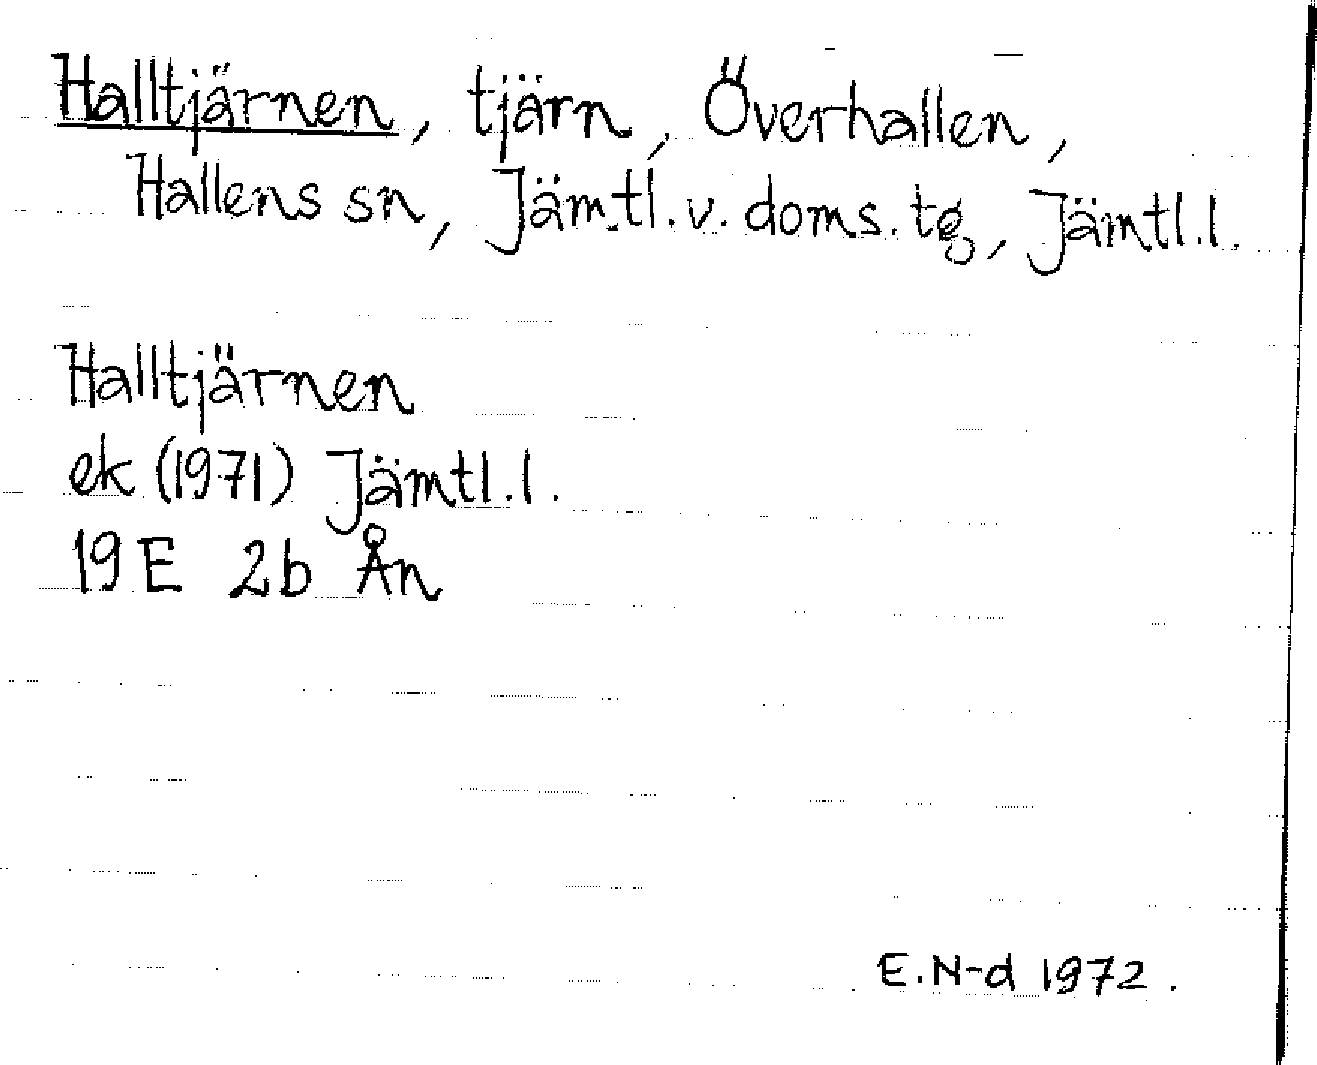 Halltjärnen, tjärn, Överhallen,
Hallens sn, Jämtl. v. doms. tg, Jämtl. l.
Halltjärnen
ek (1971) Jämtl. l.
19 E 2b Ån
E. N-d 1972.